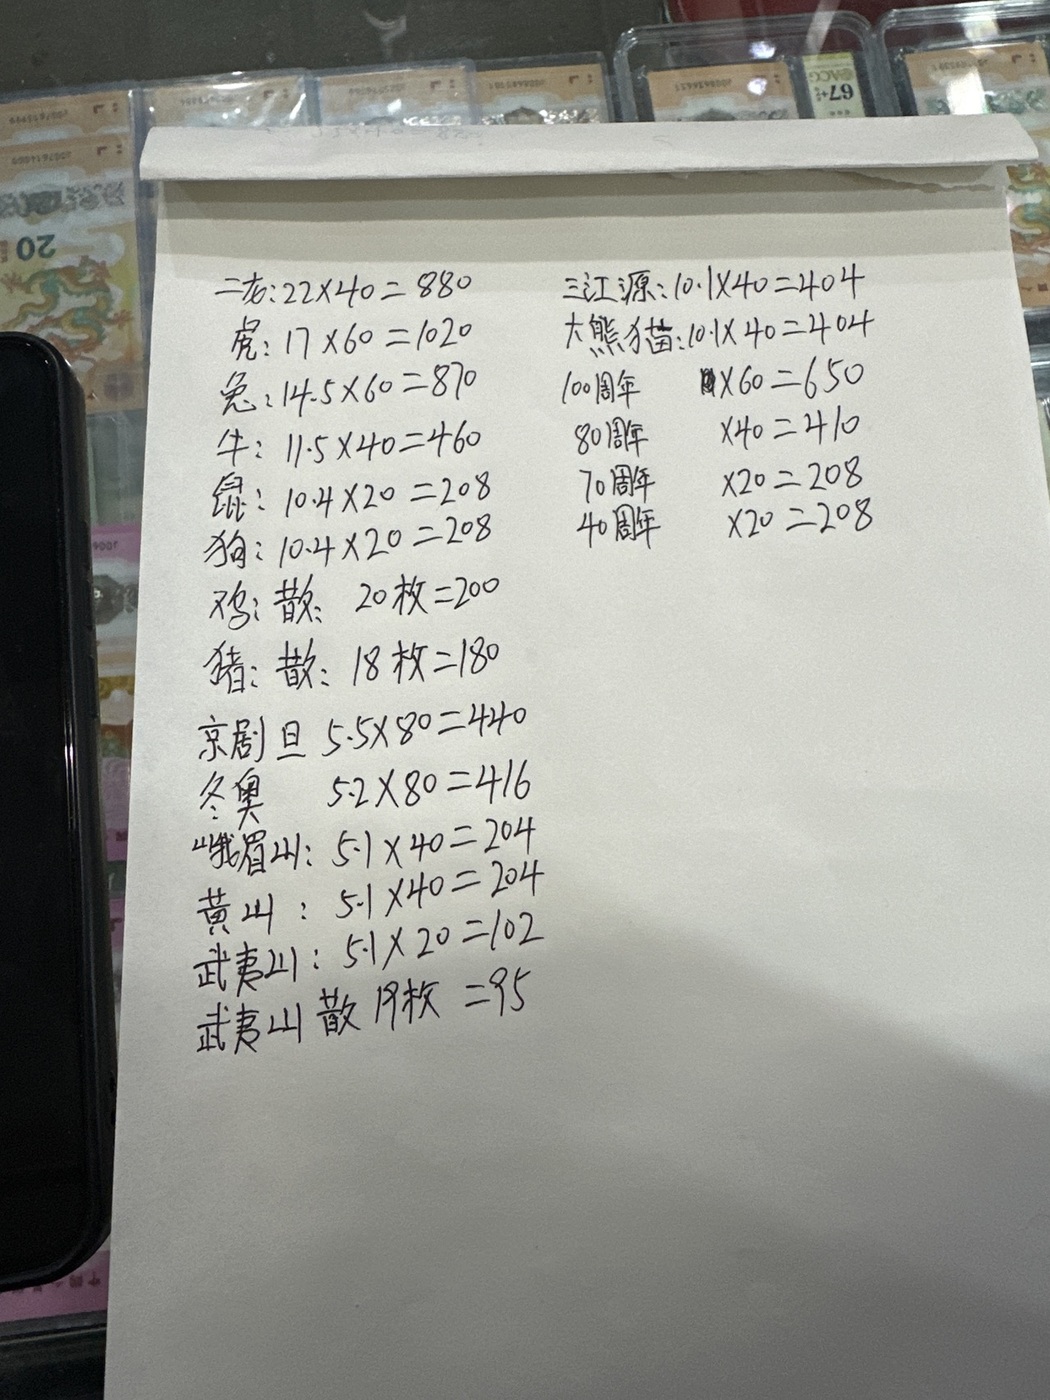 二龙:22×40=880
虎:17×60=1020
兔:14.5×60=870
牛:11.5×40=460
鼠:10.4×20=208
狗:10.4×20=208
鸡:散: 20枚=200
猪:散: 18枚=180
京剧旦 5.5×80=440
冬奥 5.2×80=416
峨眉山:5.1×40=204
黄山:5.1×40=204
武夷山:5.1×20=102
武夷山 散 19枚=95
三江源:10.1×40=404
大熊猫:10.1×40=404
100周年 ×60=650
80周年 ×40=410
70周年 ×20=208
40周年 ×20=208
20
ACG
67